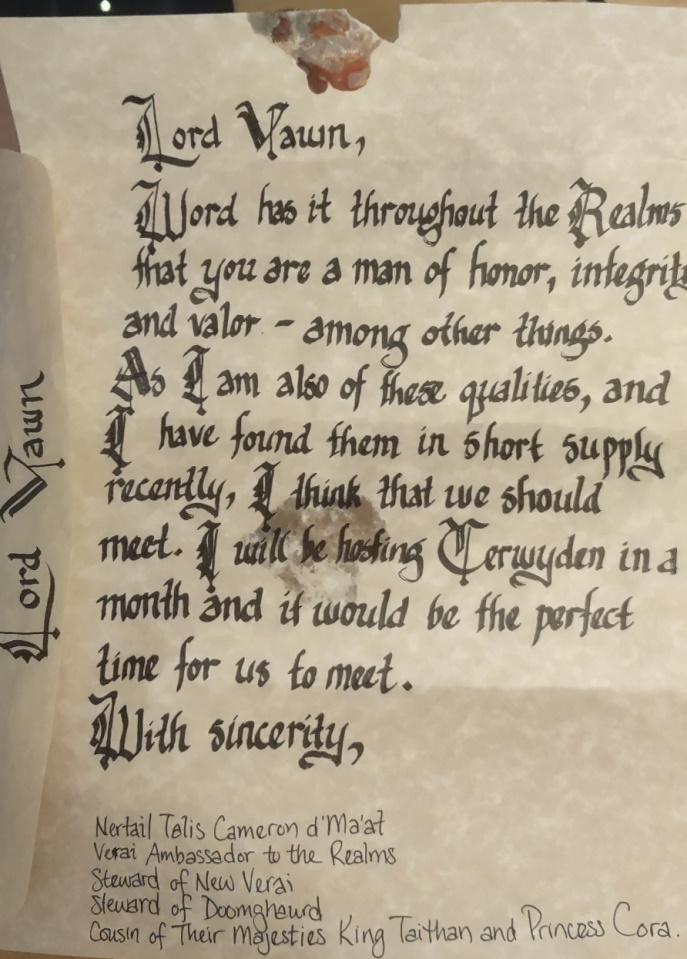 Lord Vawn,
Word has it throughout the Realms
that you are a man of honor, integrity
and valor - among other things.
As I am also of these qualities, and
I have found them in short supply
recently, I think that we should
meet. I will be hosting Terwyden in a
month and it would be the perfect
time for us to meet.
With sincerity,
Nertail Talis Cameron d'Ma'at
Verai Ambassador to the Realms
Steward of New Verai
Steward of Doomghaurd
Cousin of Their Majesties King Taithan and Princess Cora.
Lord Vawn